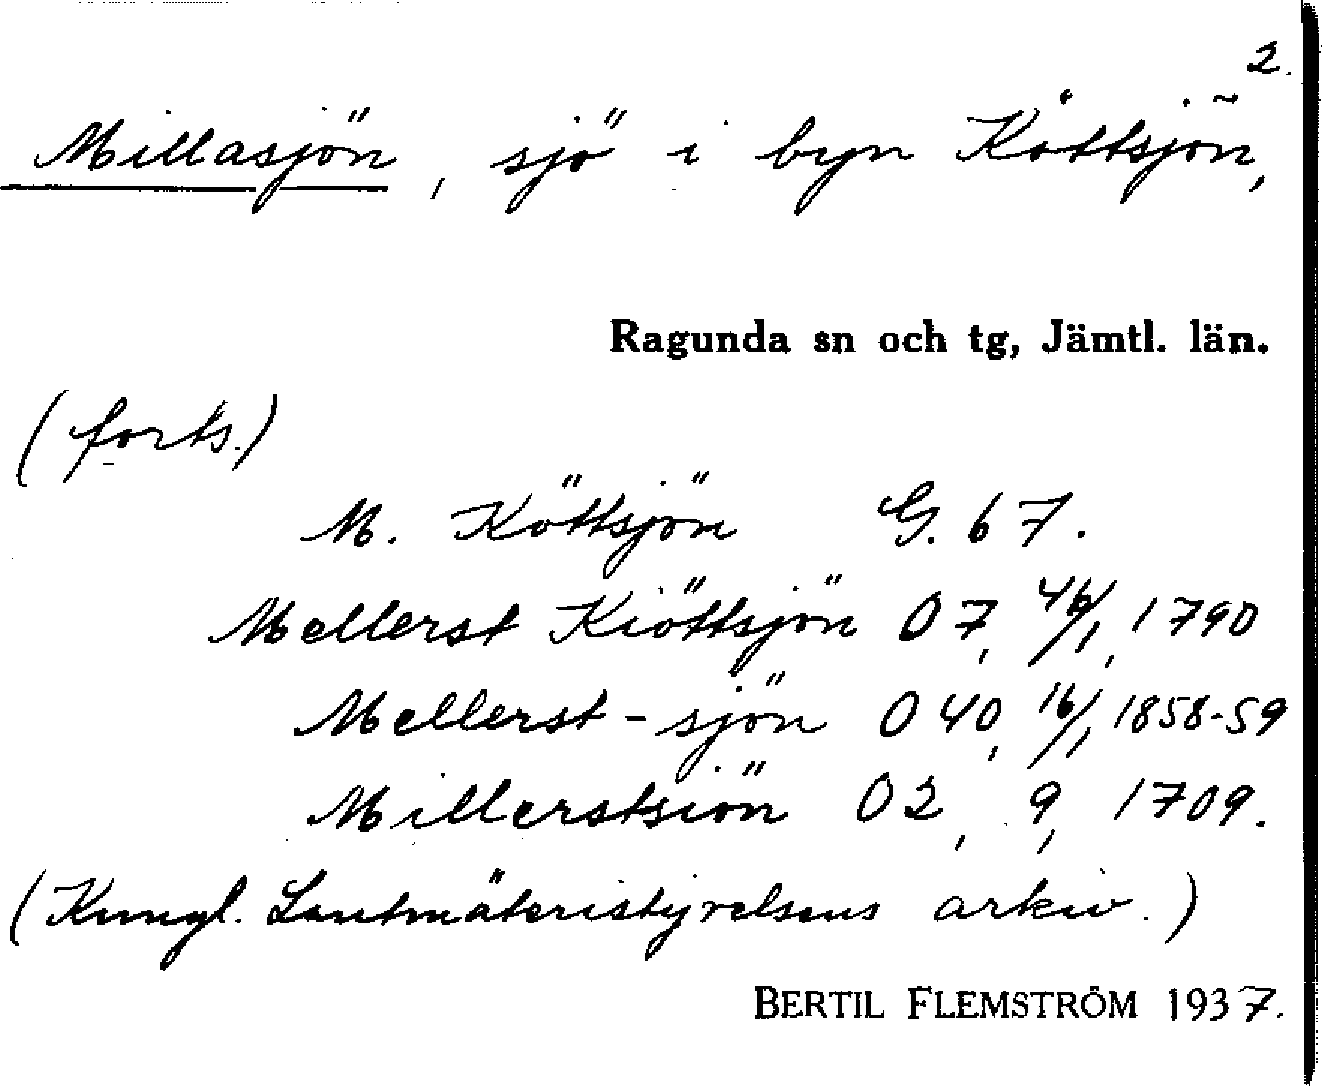 2.
Millasjön, sjö i byn Köttsjön,
Ragunda sn och tg, Jämtl. län.
(forts.)
M. Köttsjön G. 67.
Mellerst Kiöttsjön O 7, 46/1, 1790
Mellerst-sjön O 40, 16/1, 1858-59
Millerstsiön O 2, 9, 1709.
(Kungl. Lantmäteristyrelsens arkiv.)
BERTIL FLEMSTRÖM 1937.